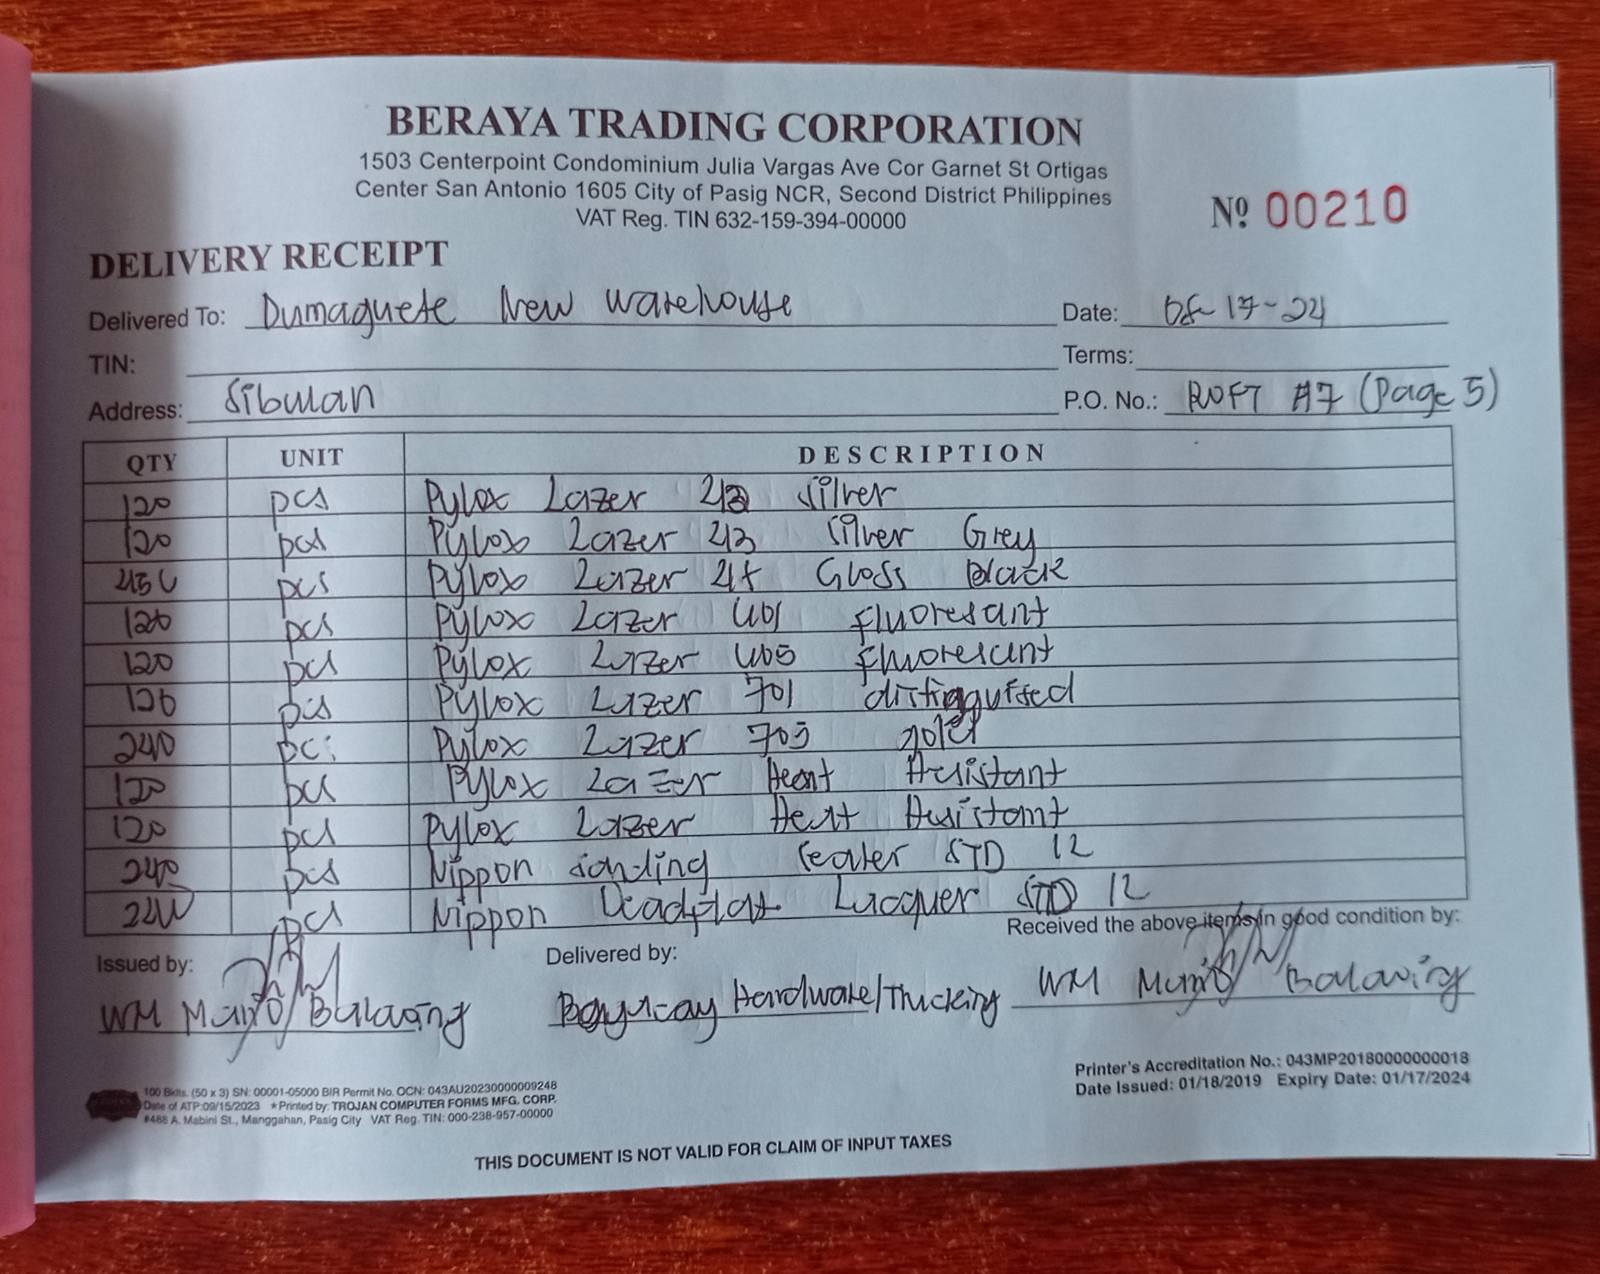 BERAYA TRADING CORPORATION
1503 Centerpoint Condominium Julia Vargas Ave Cor Garnet St Ortigas
Center San Antonio 1605 City of Pasig NCR, Second District Philippines
VAT Reg. TIN 632-159-394-00000
Nº 00210
DELIVERY RECEIPT
Delivered To: Dumaguete New warehouse
Date: 08-17-24
TIN:
Terms:
Address: Sibulan
P.O. No.: #7 (Page 5)
QTY UNIT DESCRIPTION
120 pcs Pylox Lazer silver
120 pcs Pylox Lazer 43 Silver Grey
pcs Pylox Lazer Gloss Black
120 pcs Pylox Lazer 401 fluoresant
120 pcs Pylox Lazer 405 fluoresant
120 pcs Pylox Lazer 701
240 pcs Pylox Lazer 703 gold
120 pcs Pylox Lazer Heat
120 pcs Pylox Lazer Heat
240 pcs Nippon sanding sealer STD 12
pcs Nippon Lacquer STD 12
Received the above items in good condition by:
Issued by:
Delivered by:
WM
Hardware/Trucking
WM
100 Bklts. (50 x 3) SN: 00001-05000 BIR Permit No. OCN: 043AU20230000009248
Date of ATP:09/15/2023 ★Printed by: TROJAN COMPUTER FORMS MFG. CORP.
#488 A. Mabini St., Manggahan, Pasig City VAT Reg. TIN: 000-238-957-00000
Printer's Accreditation No.: 043MP20180000000018
Date Issued: 01/18/2019 Expiry Date: 01/17/2024
THIS DOCUMENT IS NOT VALID FOR CLAIM OF INPUT TAXES